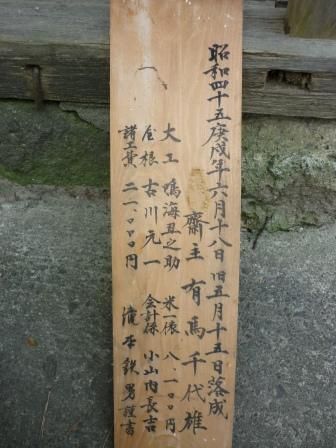 昭和四十五庚戌年六月十八日旧五月十五日落成
齋主 有馬千代雄
大工 鳴海丑之助 米一俵 八、一〇〇円
一 屋根 古川元一 会計係 小山内長吉
諸工費 二一、〇〇〇円 滝本鉄男謹書